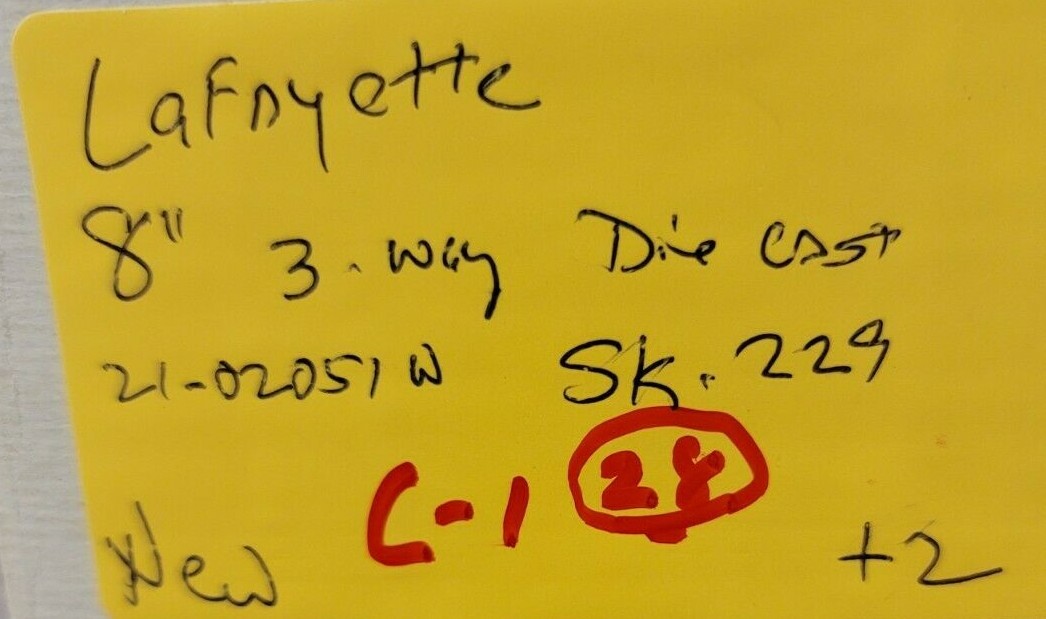 LaFayette
8" 3-way Die cast
21-02051W SK-229
C-1 28
New +2